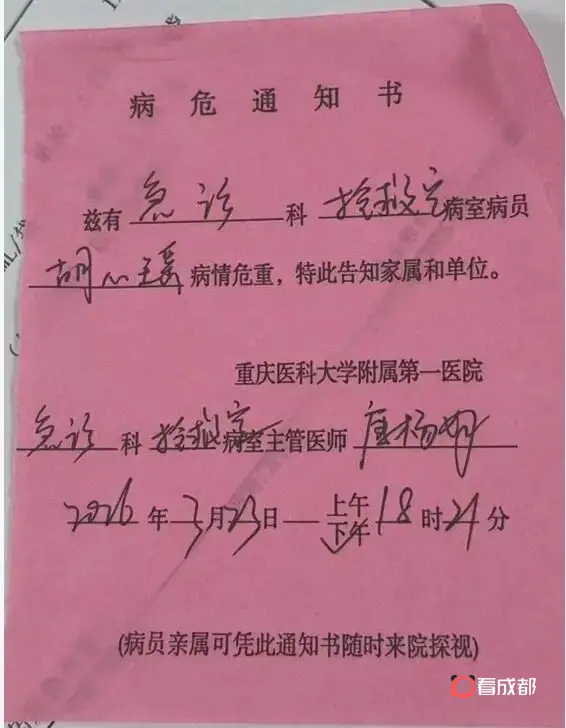 病危通知书
兹有 急诊 科 抢救室 病室病员
胡心瑶 病情危重，特此告知家属和单位。
重庆医科大学附属第一医院
急诊 科 抢救室 病室主管医师 唐杨
2026 年 3 月 23 日 上午 下午 18 时 24 分
(病员亲属可凭此通知书随时来院探视)
看成都